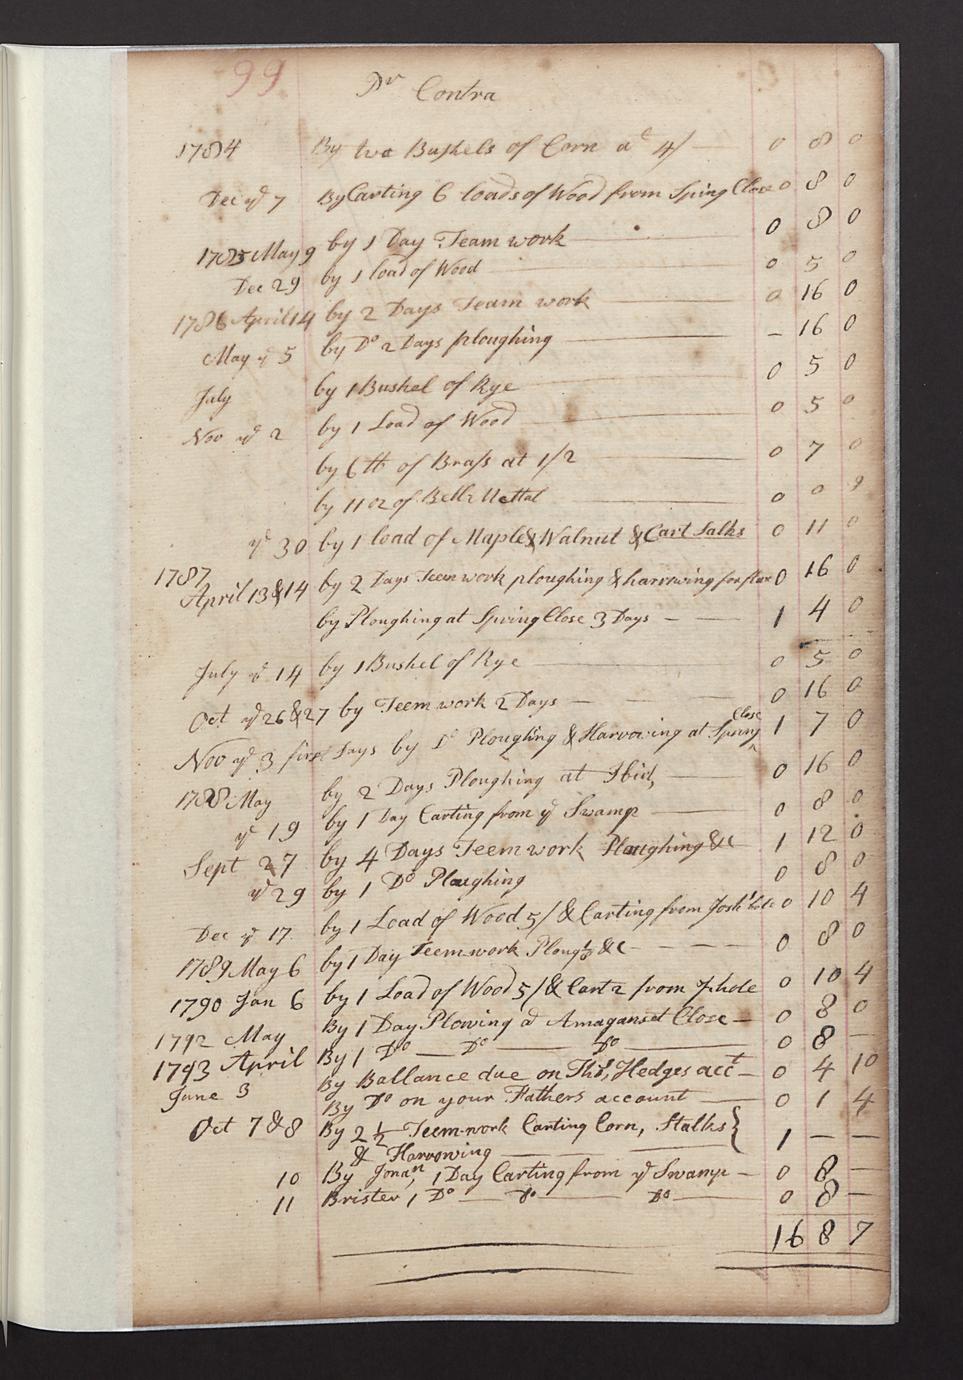 99
Dr Contra
1784 By two Bushels of Corn at 4/ 0 8 0
Dec ye 7 By Carting 6 loads of Wood from Spring Close 0 8 0
1785 May 9 by 1 Day Team work 0 8 0
Dec 29 by 1 load of Wood 0 5 0
1786 April 14 by 2 Days Team work 0 16 0
May ye 5 by Do 2 Days ploughing – 16 0
July by 1 Bushel of Rye 0 5 0
Nov ye 2 by 1 Load of Wood 0 5 0
by 6 lb of Brass at 1/2 0 7 0
by 11 oz of Bell Mettal 0 0 9
ye 30 by 1 load of Maple & Walnut & Cart Salks 0 11 0
1787
April 13 & 14 by 2 Days Teem work ploughing & harrowing for flax 0 16 0
by Ploughing at Spring Close 3 Days 1 4 0
July ye 14 by 1 Bushel of Rye 0 5 0
Oct ye 26 & 27 by Teem work 2 Days 0 16 0
Nov ye 3 first Days by Do Ploughing & Harrowing at Spring Close 1 7 0
1788 May by 2 Days Ploughing at Ibid, 0 16 0
ye 19 by 1 Day Carting from ye Swamp 0 8 0
Sept 27 by 4 Days Teem work Ploughing &c 1 12 0
ye 29 by 1 Do Ploughing 0 8 0
Dec ye 17 by 1 Load of Wood 5/ & Carting from Josh hole 0 10 4
1789 May 6 by 1 Day Teemwork Plough &c 0 8 0
1790 Jan 6 by 1 Load of Wood 5/ & Cart from hole 0 10 4
1792 May By 1 Day Plowing at Amaganset Close 0 8 0
1793 April By 1 Do Do Do 0 8 –
June 3 By Ballance due on Thos, Hedges acct 0 4 10
By Do on your Fathers account 0 1 4
Oct 7 & 8 By 2 ½ Teemwork Carting Corn, Stalks } 1 – –
& Harrowing
10 By Jonan, 1 Day Carting from ye Swamp 0 8 –
11 Brister, 1 Do Do Do 0 8 –
16 8 7